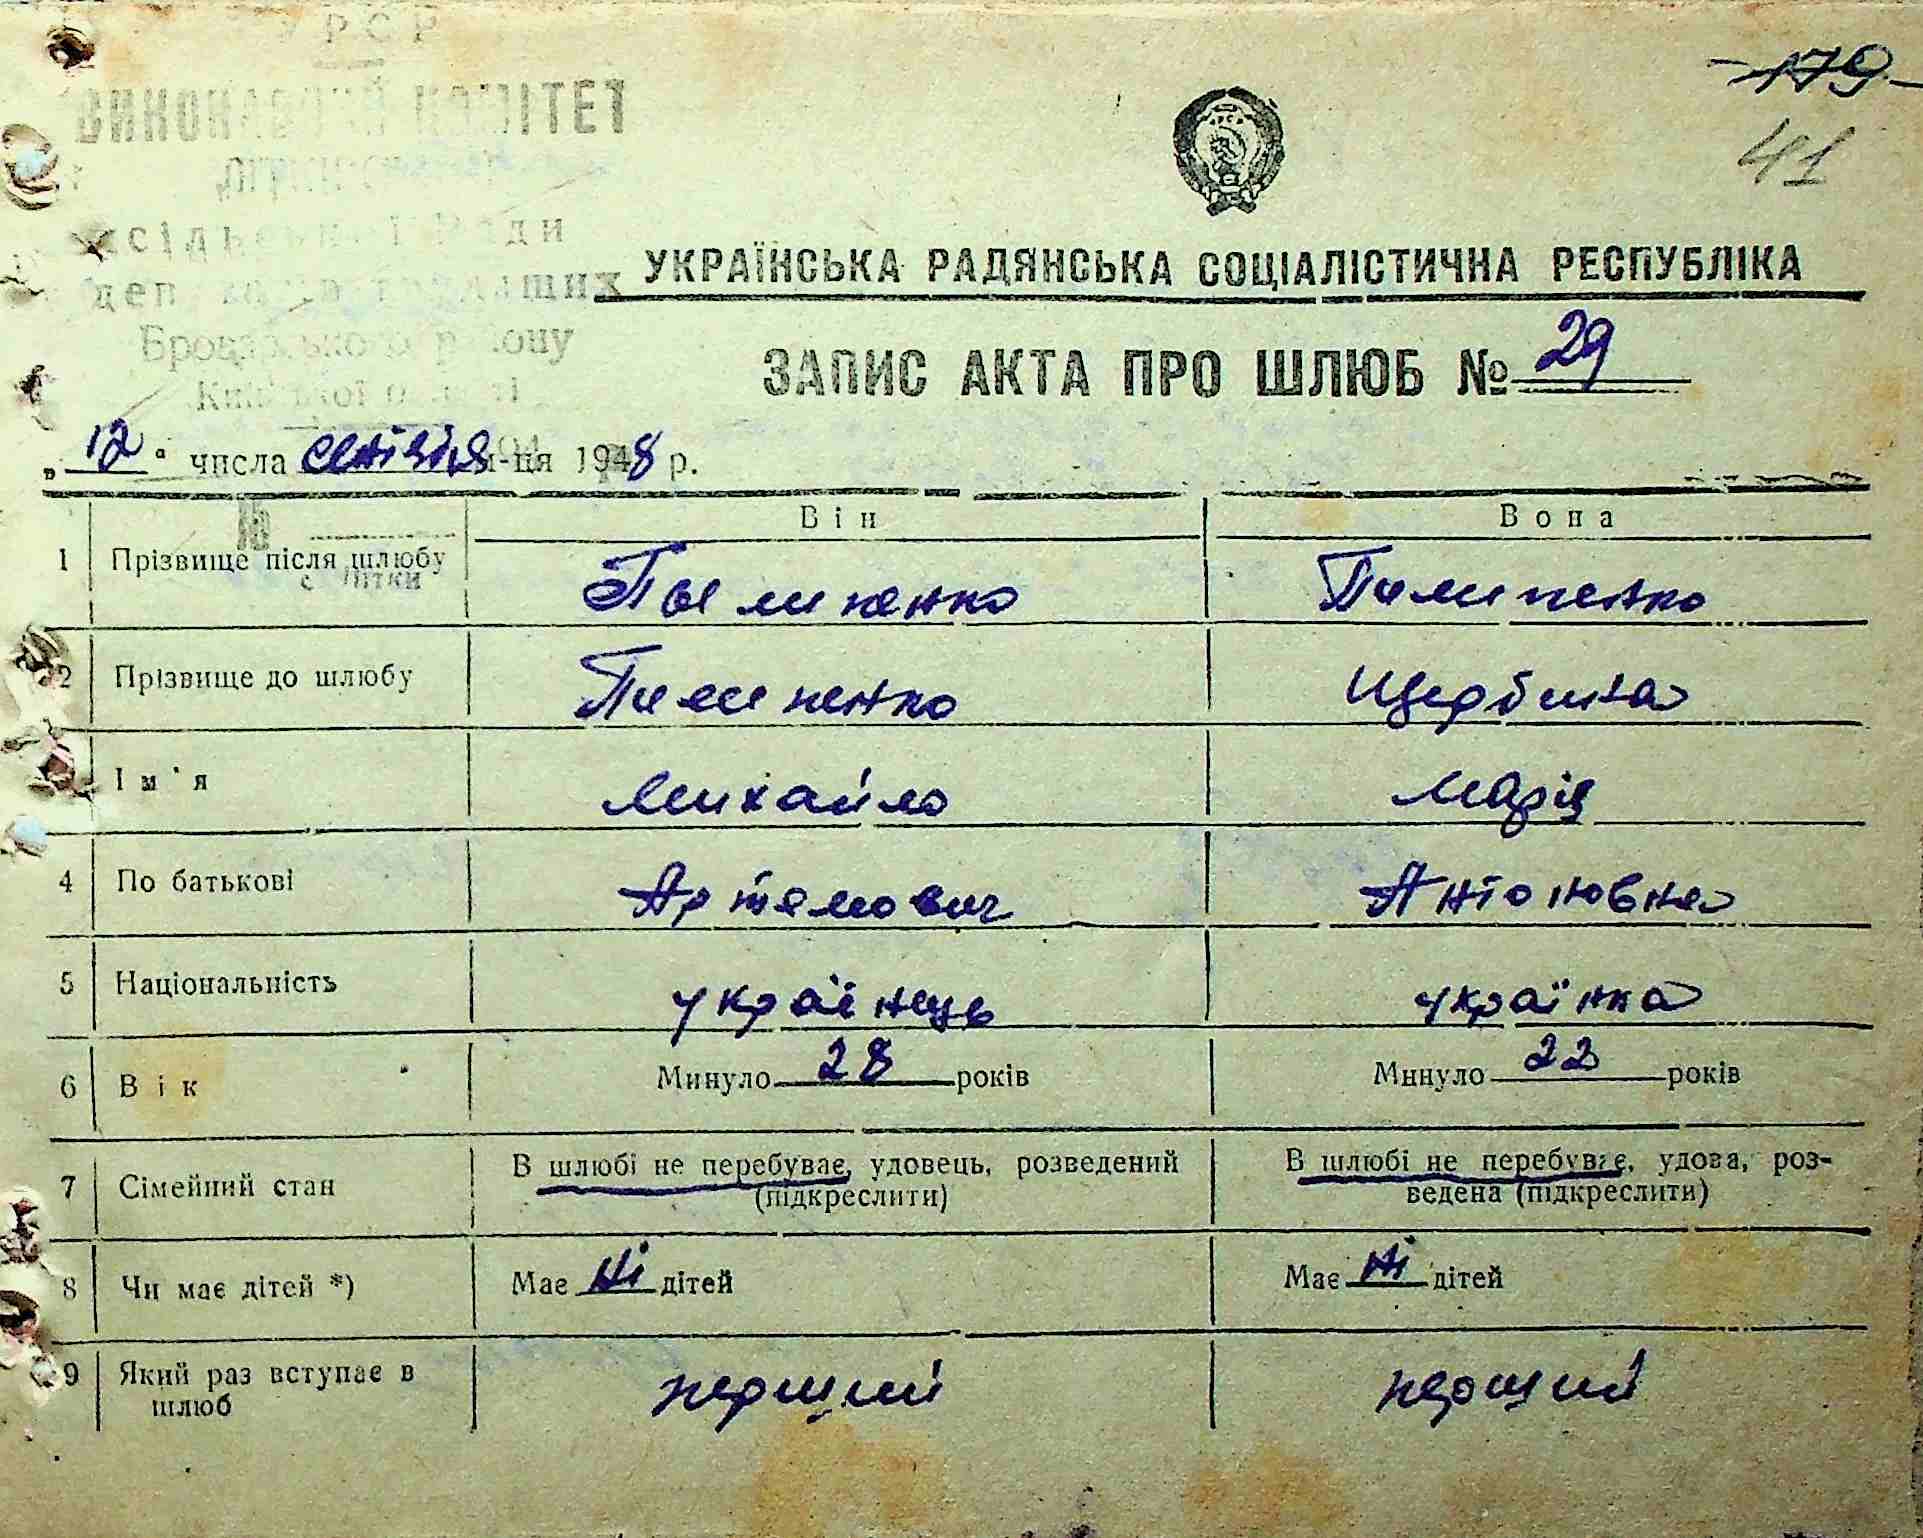 УРСР
ВИКОНАВЧИЙ КОМІТЕТ
сільської Ради
деп трудящих
Броварського району
Київської області
-179-
41
УКРАЇНСЬКА РАДЯНСЬКА СОЦІАЛІСТИЧНА РЕСПУБЛІКА
ЗАПИС АКТА ПРО ШЛЮБ № 29
„12“ числа січня м-ця 1948 р.
№
с. Літки
Він Вона
1 Прізвище після шлюбу Пилипенко Пилипенко
2 Прізвище до шлюбу Пилипенко Щербина
Ім'я Михайло Марія
4 По батькові Артемович Антоновна
5 Національність українець українка
6 Вік Минуло 28 років Минуло 22 років
7 Сімейний стан В шлюбі не перебуває, удовець, розведений (підкреслити) В шлюбі не перебуває, удова, роз-
ведена (підкреслити)
8 Чи має дітей *) Має Ні дітей Має Ні дітей
9 Який раз вступає в шлюб перший перший